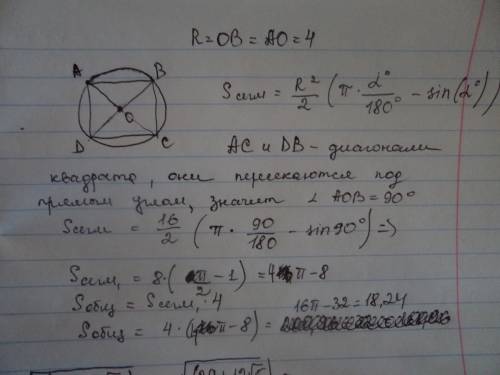 R = OB = AO = 4
A B
O
D C
Sсегм = R²/2 (π · α°/180° − sin(α°))
AC и DB - диагонали
квадрата, они пересекаются под
прямым углом, значит ∠ AOB = 90°
Sсегм = 16/2 (π · 90/180 − sin 90°) =>
Sсегм₁ = 8 · (π/2 − 1) = 4π − 8
Sобщ = Sсегм₁ · 4
16π − 32 = 18,24
Sобщ = 4 · (4π − 8) =